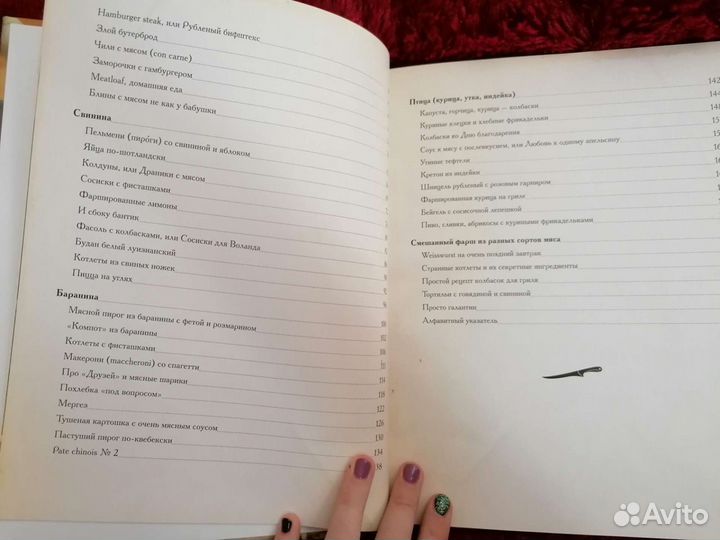 Hamburger steak, или Рубленый бифштекс
Злой бутерброд
Чили с мясом (con carne)
Заморочки с гамбургером
Meatloaf, домашняя еда
Блины с мясом не как у бабушки
Свинина
Пельмени (пирóги) со свининой и яблоком
Яйца по-шотландски
Колдуны, или Драники с мясом
Сосиски с фисташками
Фаршированные лимоны
И сбоку бантик
Фасоль с колбасками, или Сосиски для Воланда
Будан белый луизианский
Котлеты из свиных ножек
Пицца на углях
Баранина
Мясной пирог из баранины с фетой и розмарином 100
«Компот» из баранины 102
Котлеты с фисташками 106
Макерони (maccheroni) со спагетти 111
Про «Друзей» и мясные шарики 114
Похлебка «под вопросом» 118
Мергез 122
Тушеная картошка с очень мясным соусом 126
Пастуший пирог по-квебекски 130
Pate chinois № 2 134
138
Птица (курица, утка, индейка) 142
Капуста, горчица, курица — колбаски 144
Куриные клецки и хлебные фрикадельки 148
Колбаски ко Дню благодарения
Соус к мясу с послевкусием, или Любовь к одному апельсину
Утиные тефтели
Кретон из индейки
Шницель рубленый с розовым гарниром
Фаршированная курица на гриле
Бейгель с сосисочной лепешкой
Пиво, сливки, абрикосы с куриными фрикадельками
Смешанный фарш из разных сортов мяса
Weisswurst на очень поздний завтрак
Странные котлеты и их секретные ингредиенты
Простой рецепт колбасок для гриля
Тортильи с говядиной и свининой
Просто галантин
Алфавитный указатель
Avito